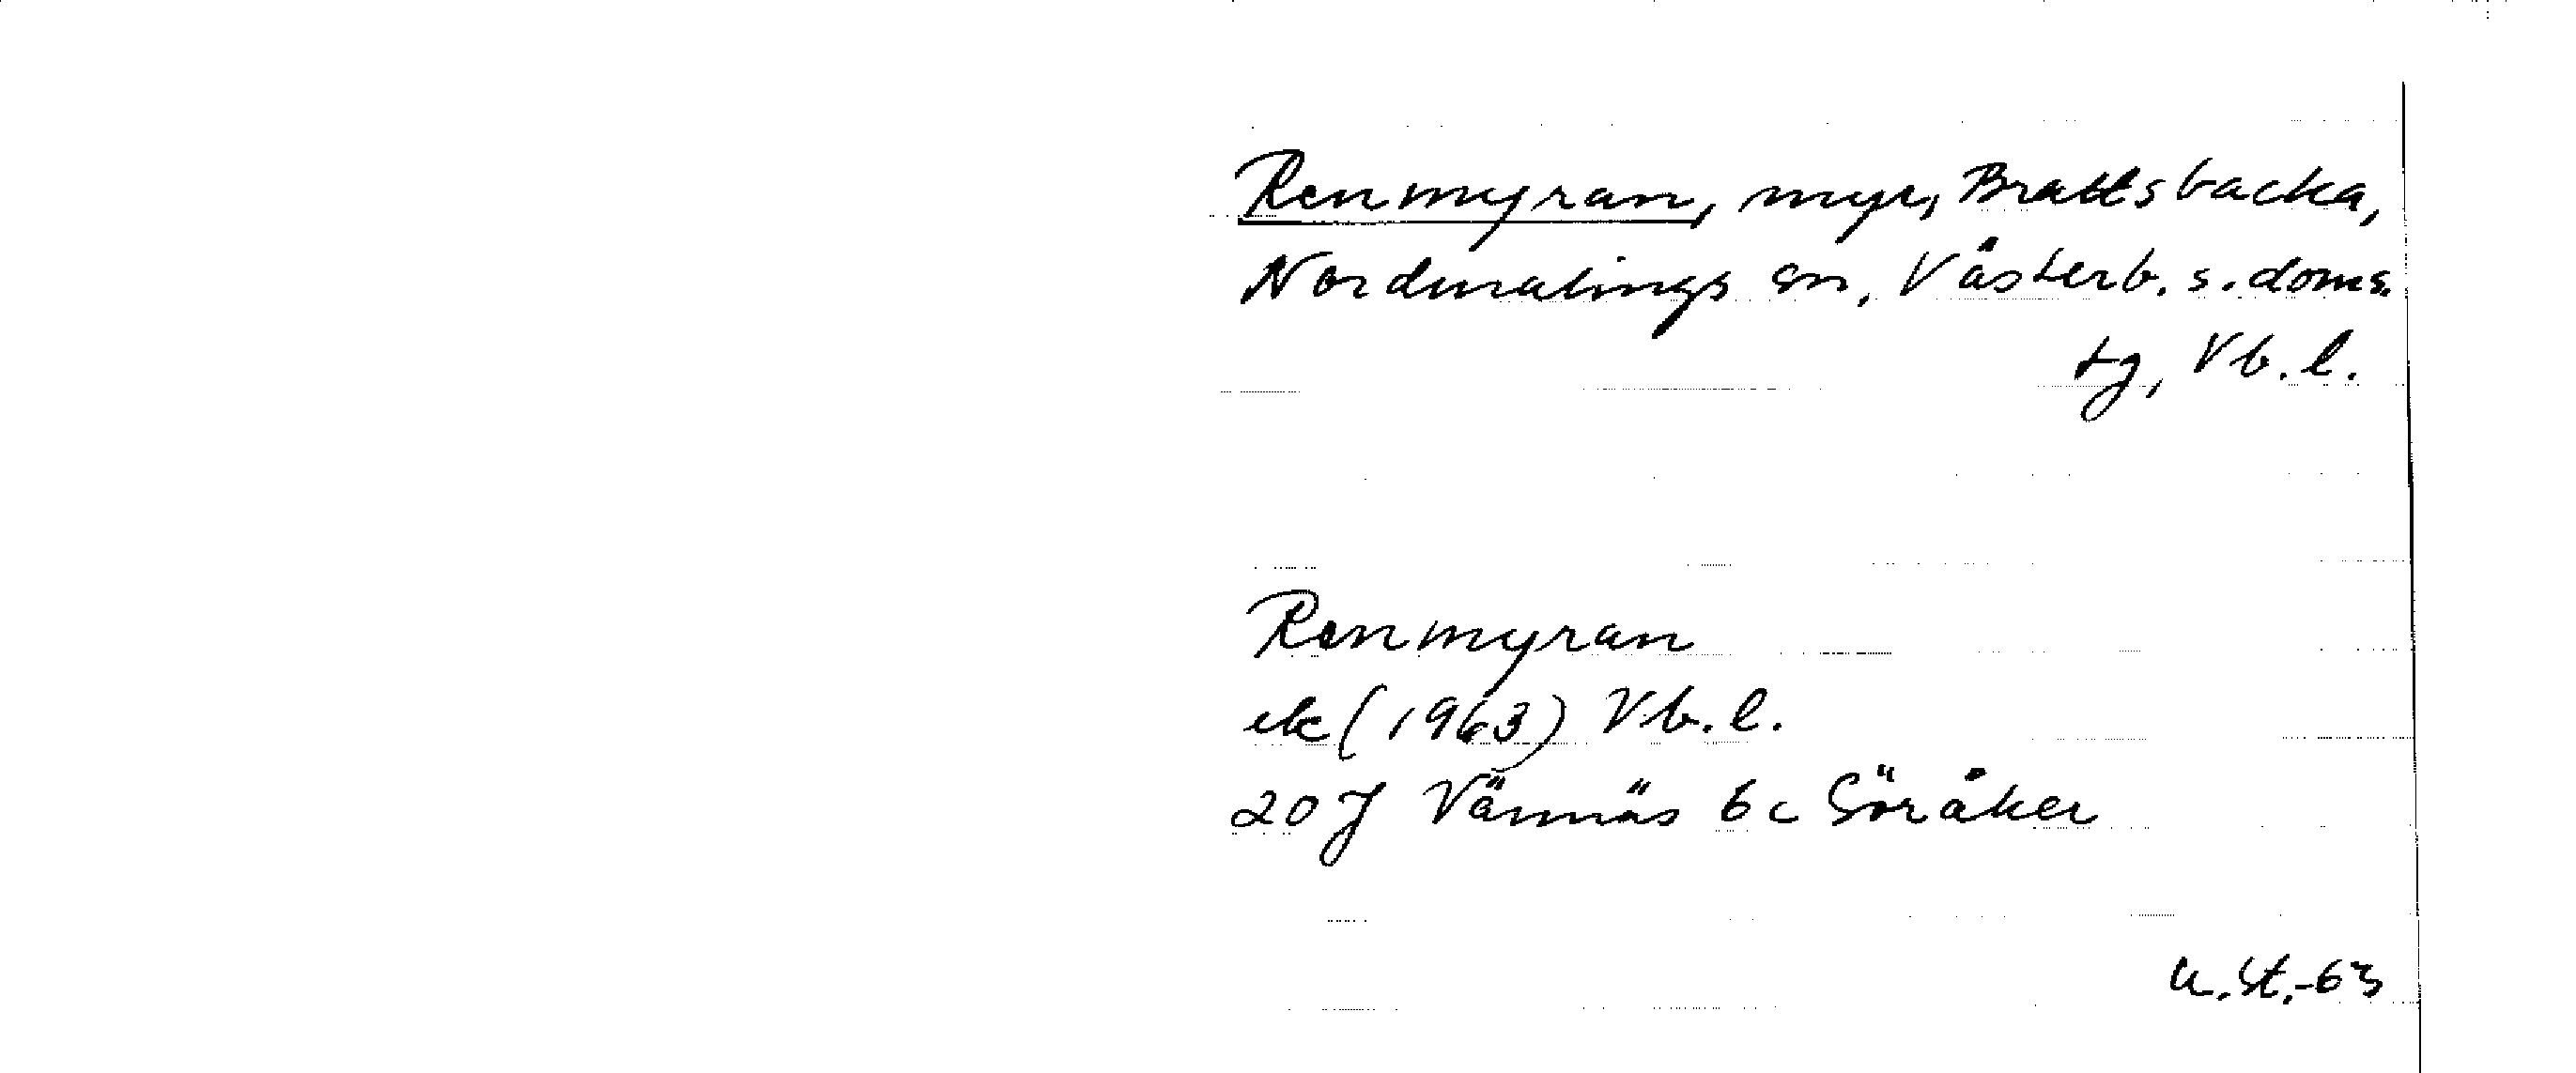 Renmyran, myr, Brattsbacka,
Nordmalings sn, Västerb. s. doms.
tg, Vb. l.
Renmyran
ek (1963) Vb. l.
20 J Vännäs 6 c Söråker
U. St. -63